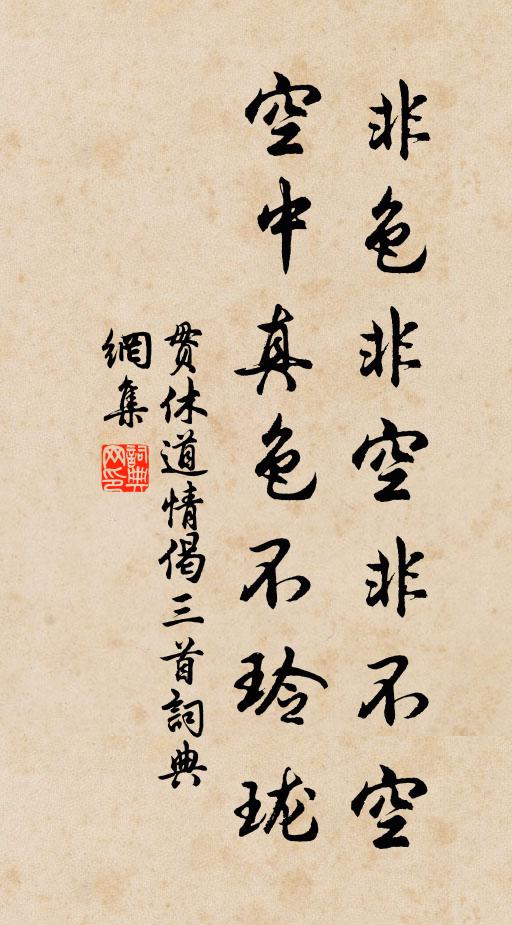 非色非空非不空
空中真色不玲珑
贯休道情偈三首詞典
網集
詞典
网印